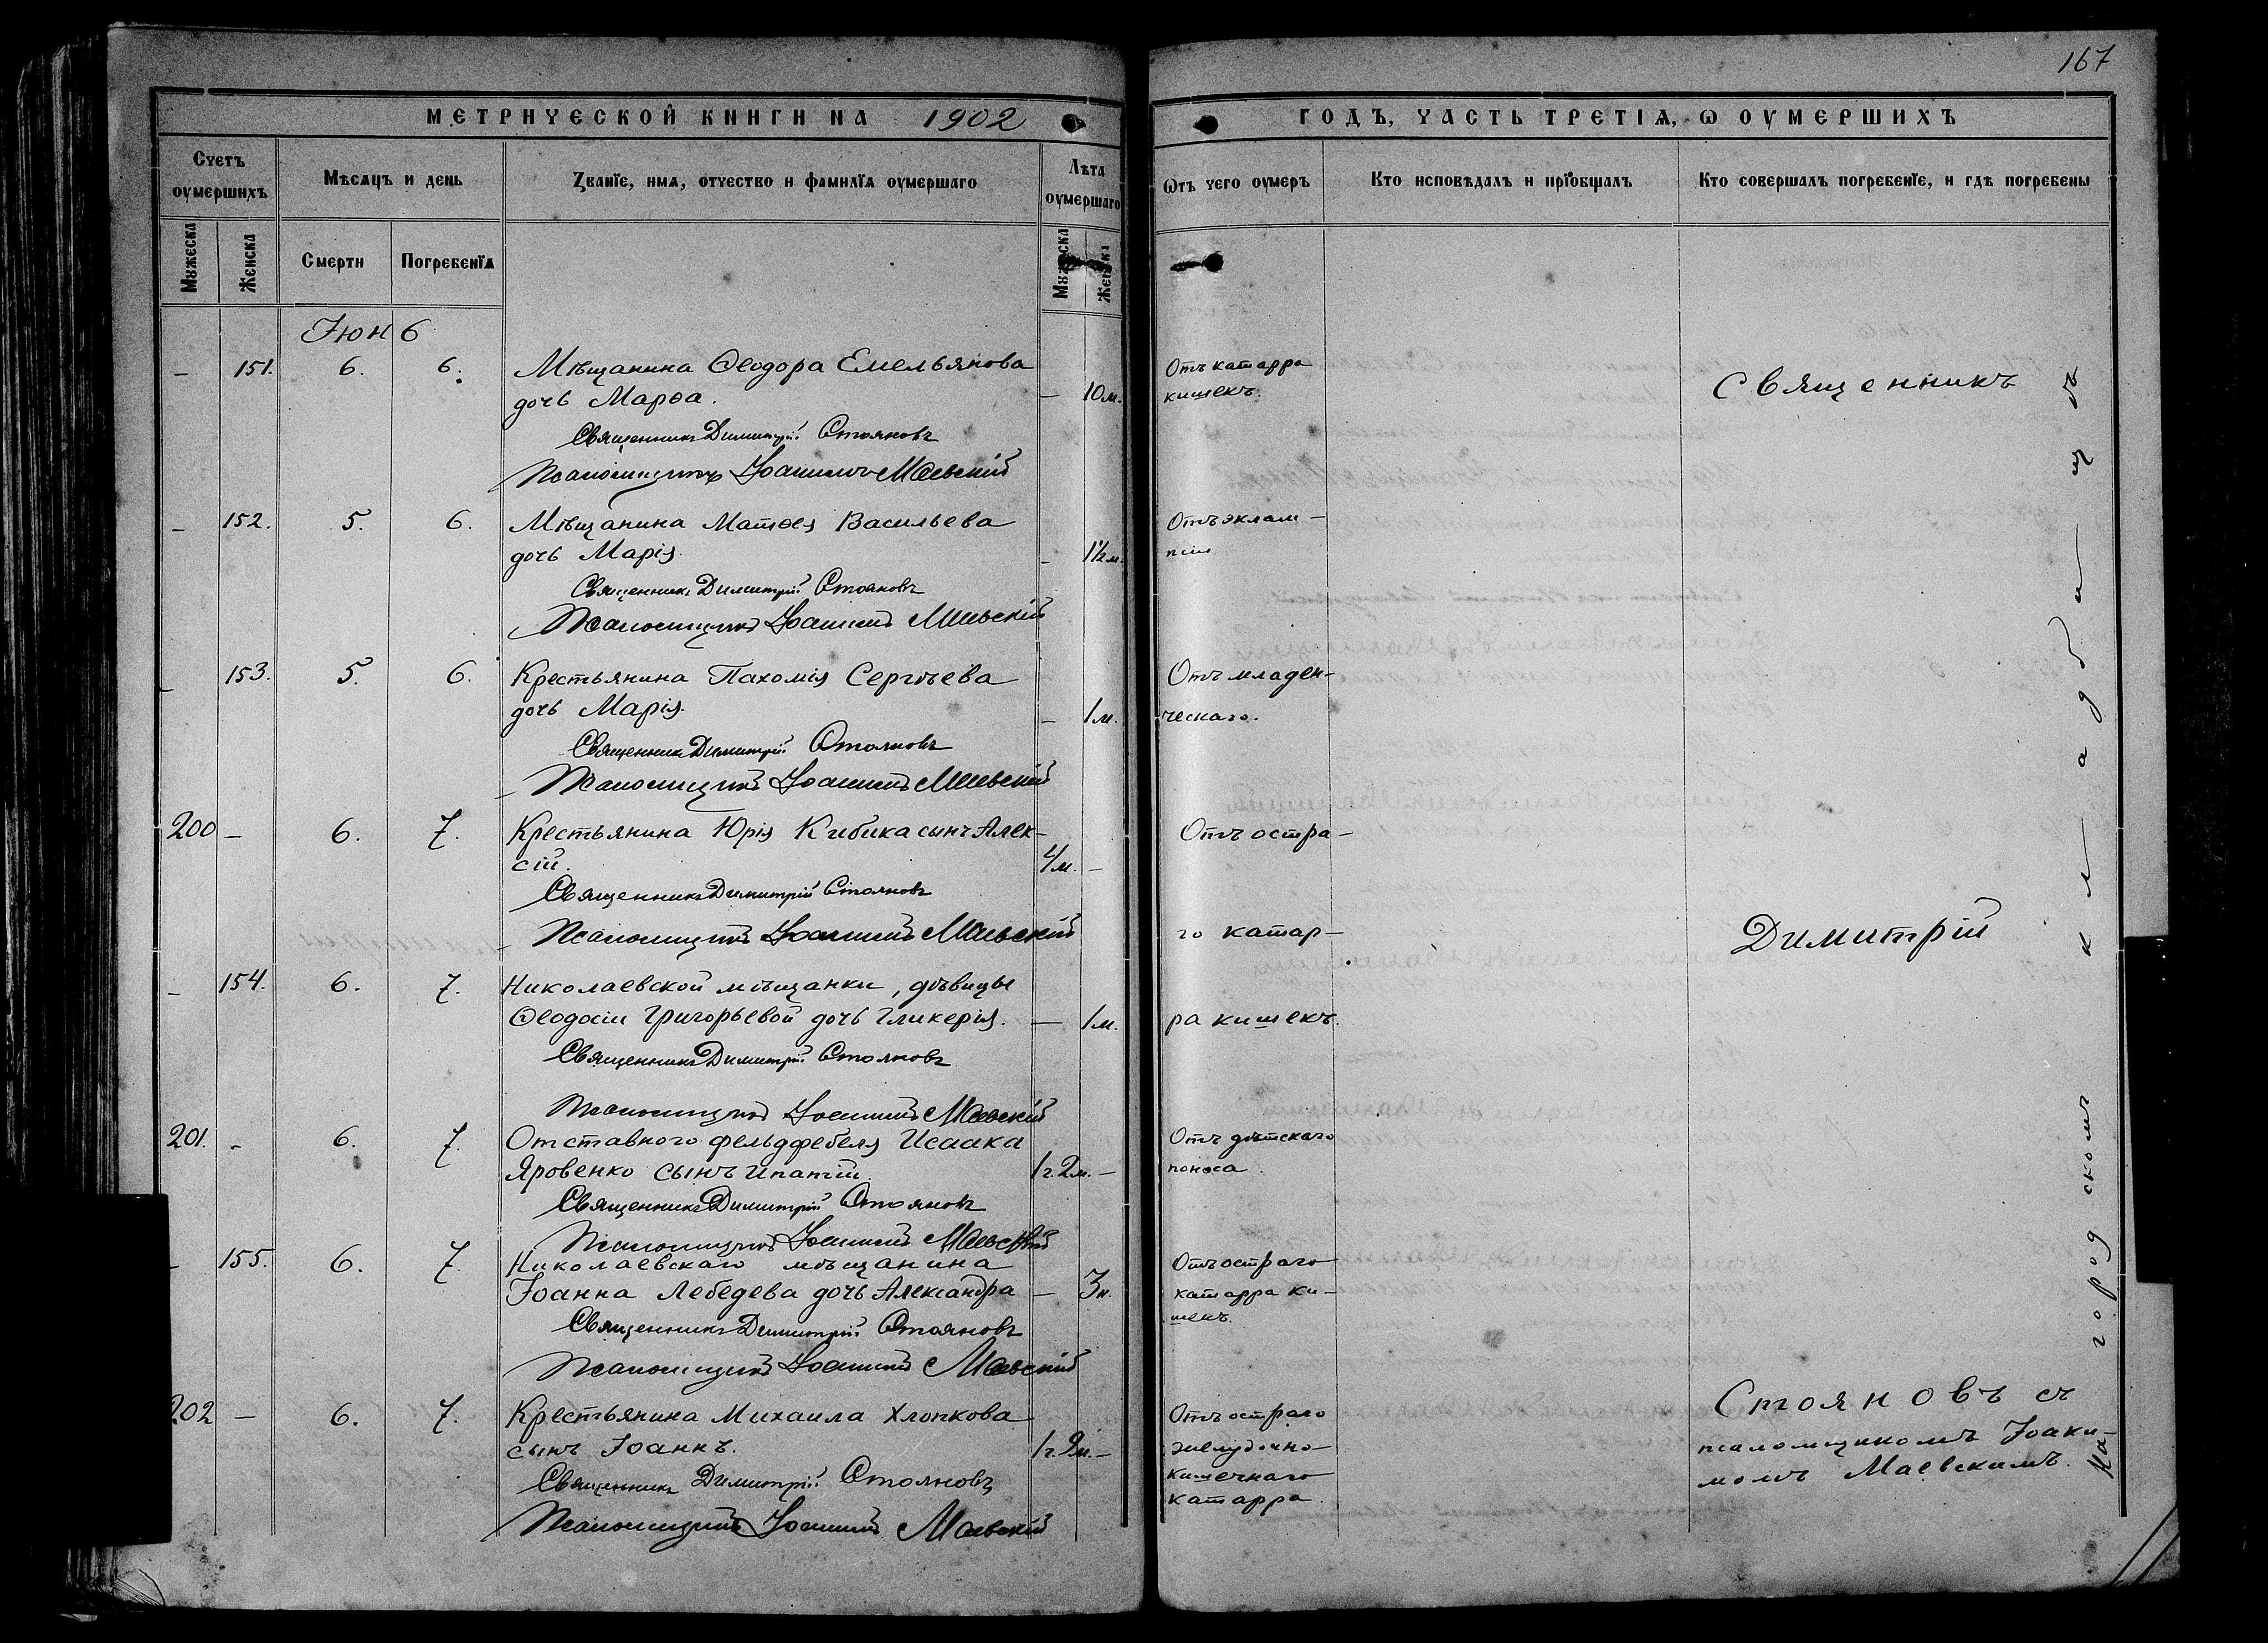 167
МЕТРИЧЕСКОЙ КНИГИ НА 1902
ГОДЪ, ЧАСТЬ ТРЕТІѦ, Ѡ ОУМЕРШИХЪ
Счетъ оумершихъ
Мѣсяцъ и день
Званїе, имѧ, отчество и фамилїѧ оумершаго
Лѣта оумершаго
Ѿтъ чего оумеръ
Кто исповѣдалъ и прїобщалъ
Кто совершалъ погребенїе, и гдѣ погребены
Мужеска
Женска
Смерти
Погребенїѧ
Мужеска
Женска
Іюнь
— 151. 6. 6. Мѣщанина Ѳеодора Емельянова
дочь Марѳа. — 10 м. Отъ катарра
кишекъ.
Священникъ Димитрій Стояновъ
Псаломщикъ Іоакимъ Маевскій
— 152. 5. 6. Мѣщанина Матѳея Васильева
дочь Марія. — 1½ м. Отъ эклам-
псіи
Священникъ Димитрій Стояновъ
Псаломщикъ Іоакимъ Маевскій
— 153. 5. 6. Крестьянина Пахомія Сергѣева
дочь Марія. — 1 м. Отъ младен-
ческаго.
Священникъ Димитрій Стояновъ
Псаломщикъ Іоакимъ Маевскій
200 — 6. 7. Крестьянина Юрія Кибика сынъ Алек-
сій. 4 м. — Отъ остра-
Священникъ Димитрій Стояновъ
Псаломщикъ Іоакимъ Маевскій
го катар-
— 154. 6. 7. Николаевской мѣщанки, дѣвицы
Ѳеодосіи Григорьевой дочь Гликерія. — 1 м. ра кишекъ.
Священникъ Димитрій Стояновъ
Псаломщикъ Іоакимъ Маевскій
201. - 6. 7. Отставного фельдфебеля Исаака
Яровенко сынъ Ипатій. 1 г. 2 м. — Отъ дѣтскаго
поноса.
Священникъ Димитрій Стояновъ
Псаломщикъ Іоакимъ Маевскій
— 155. 6. 7. Николаевскаго мѣщанина
Іоанна Лебедева дочь Александра — 3 н. Отъ остраго
катарра ки-
шекъ.
Священникъ Димитрій Стояновъ
Псаломщикъ Іоакимъ Маевскій
202 — 6. 7. Крестьянина Михаила Хлопкова
сынъ Іоаннъ. 1 г. 9 м. — Отъ остраго
желудочно-
кишечнаго
катарра.
Священникъ Димитрій Стояновъ
Псаломщикъ Іоакимъ Маевскій
Священникъ
Димитрій
Стояновъ съ
псаломщикомъ Іоаки-
момъ Маевскимъ.
На городскомъ кладбищѣ